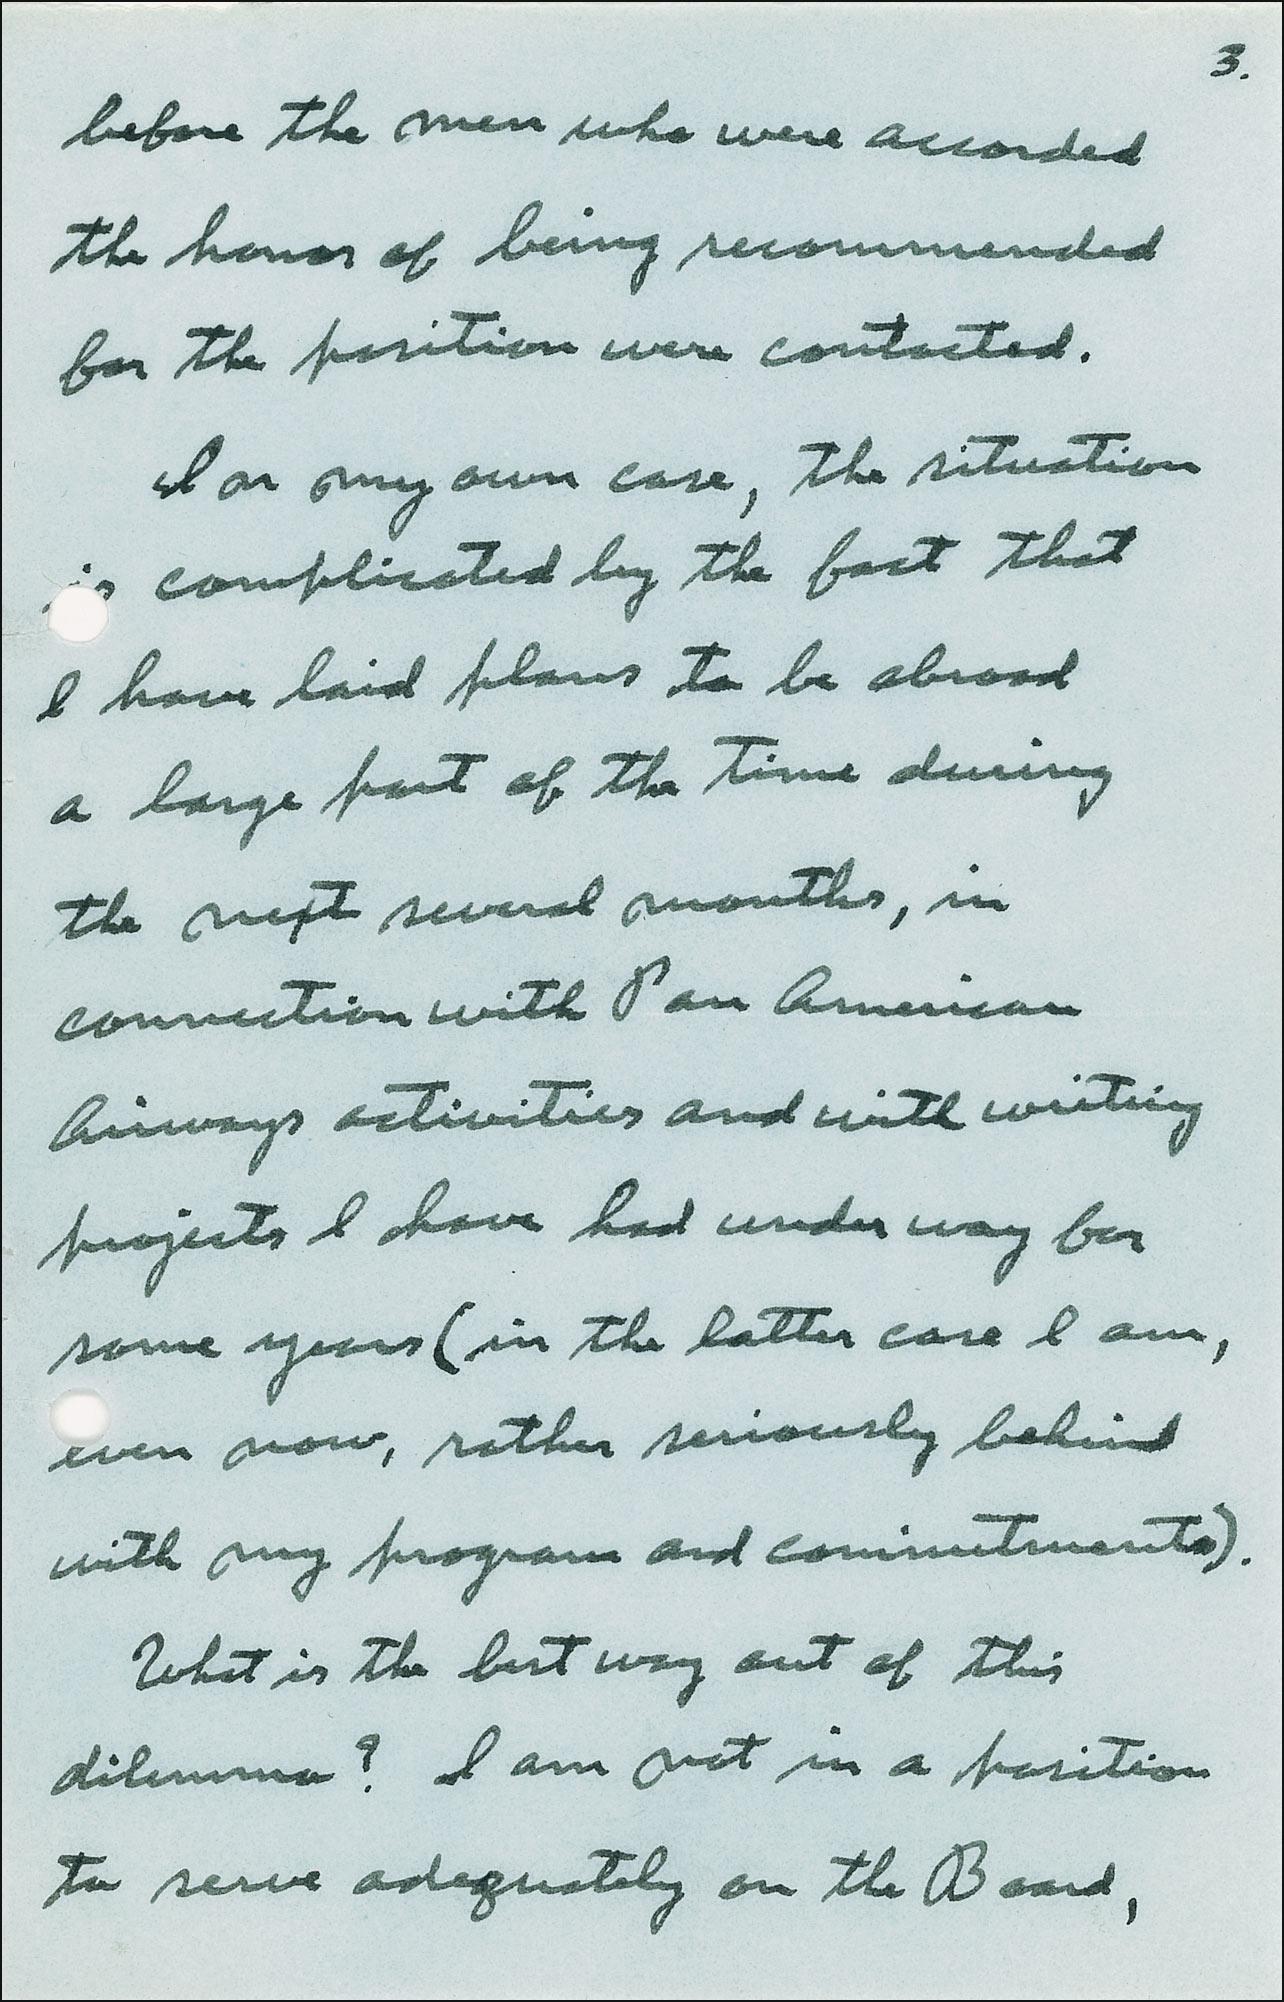 3.
before the men who were accorded
the honor of being recommended
for the position were contacted.
In my own case, the situation
is complicated by the fact that
I have laid plans to be abroad
a large part of the time during
the next several months, in
connection with Pan American
Airways activities and with writing
projects I have had under way for
some years (in the latter case I am,
even now, rather seriously behind
with my program and commitments).
What is the best way out of this
dilemma? I am not in a position
to serve adequately on the Board,